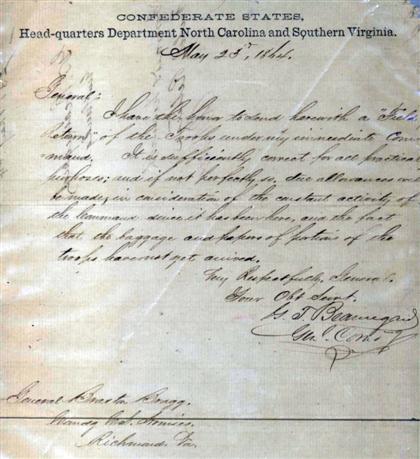 CONFEDERATE STATES,
Head-quarters Department North Carolina and Southern Virginia.
May 23d, 1864.
General:
I have the honor to send herewith a "Field
Return" of the Troops under my immediate Com-
mand. It is sufficiently correct for all practical
purposes; and if not perfectly so, due allowances will
be made, in consideration of the constant activity of
the Command since it has been here, and the fact
that the baggage and papers of portion of the
troops have not yet arrived.
Very Respectfully, General,
Your Obt Servt.
G. T. Beauregard
Genl. Comg
General Braxton Bragg,
Comdg C.S. Armies,
Richmond Va.